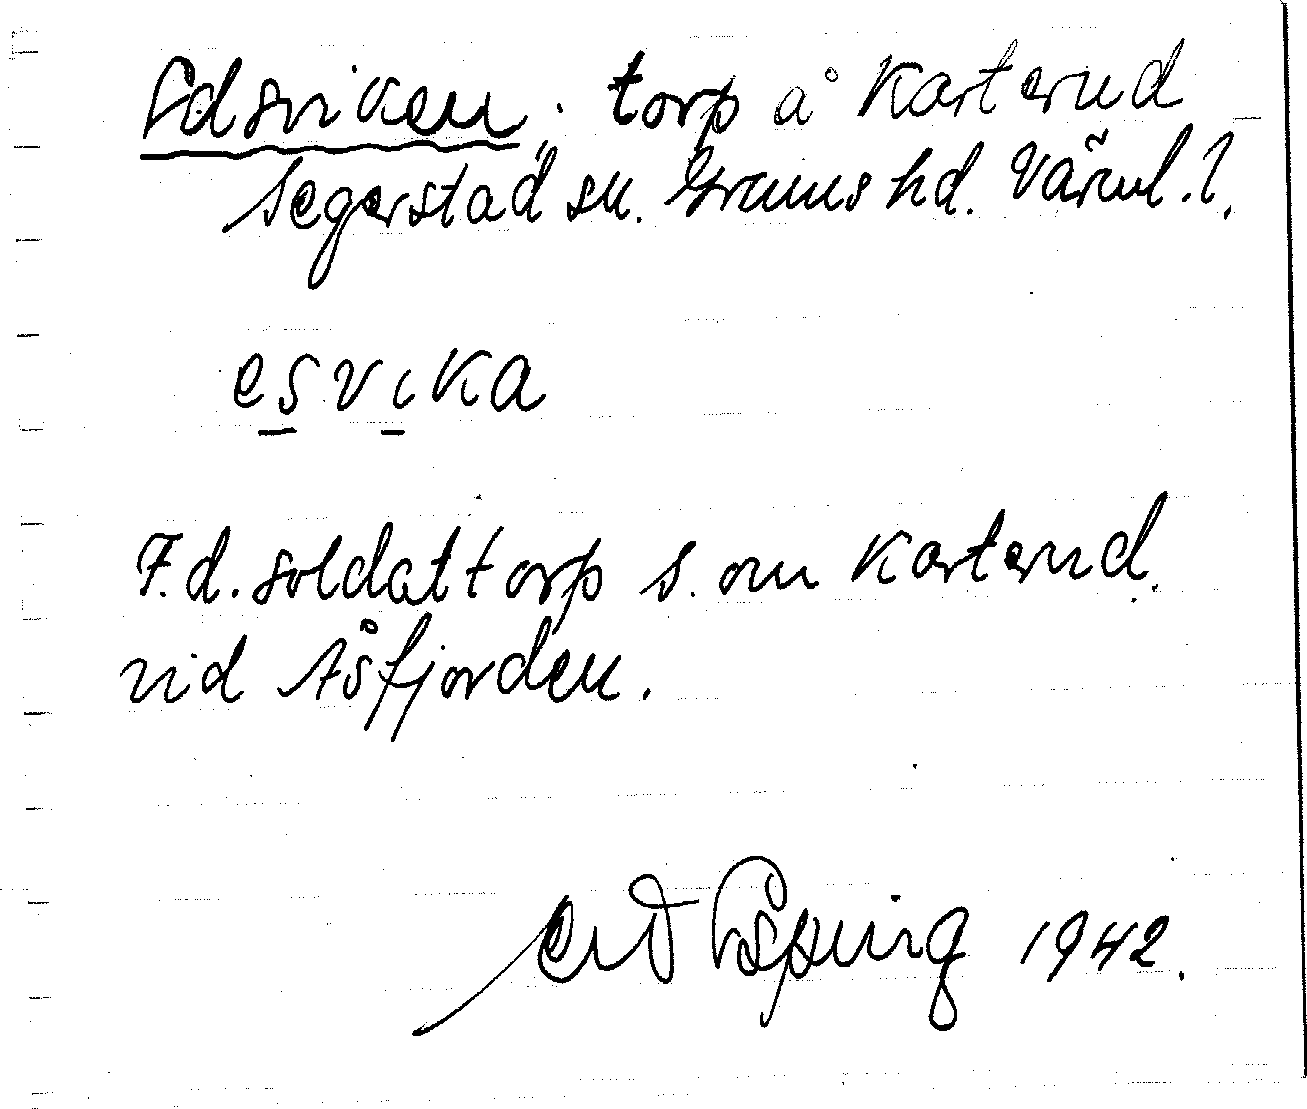 Edsviken, torp å Karterud
Segerstad sn. Grums hd. Värml. l.
esvika
F.d. soldattorp s. om Karterud.
vid Åsfjorden.
1942.